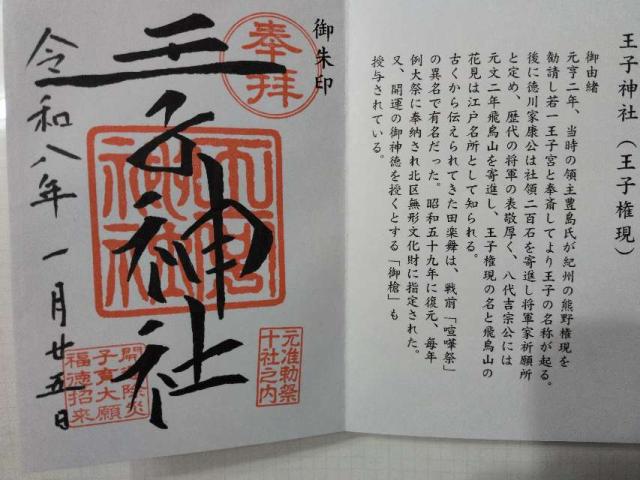 王子神社(王子権現)
御由緒
元亨二年、当時の領主豊島氏が紀州の熊野権現を
勧請し若一王子宮と奉斎してより王子の名称が起る。
後に徳川家康公は社領二百石を寄進し将軍家祈願所
と定め、歴代の将軍の表敬厚く、八代吉宗公には
元文二年飛鳥山を寄進し、王子権現の名と飛鳥山の
花見は江戸名所として知られる。
古くから伝えられてきた田楽舞は、戦前「喧嘩祭」
の異名で有名だった。昭和五十九年に復元、毎年
例大祭に奉納され北区無形文化財に指定された。
又、開運の御神徳を授くとする「御槍」も
授与されている。
御朱印
奉拝
王子神社
元准勅祭
十社之内
開運除災
子育大願
福徳招来
令和八年一月廿五日